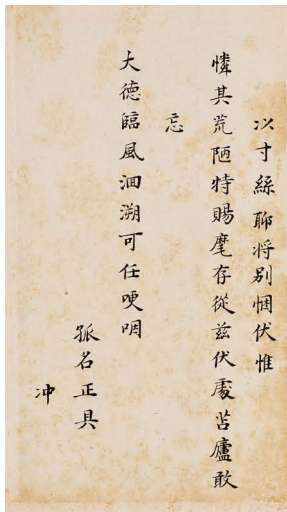 以寸絲聊将别悃伏惟
憐其荒陋特賜麾存從茲伏處苫廬敢
忘
大德臨風洄溯可任哽咽
孤名正具
冲